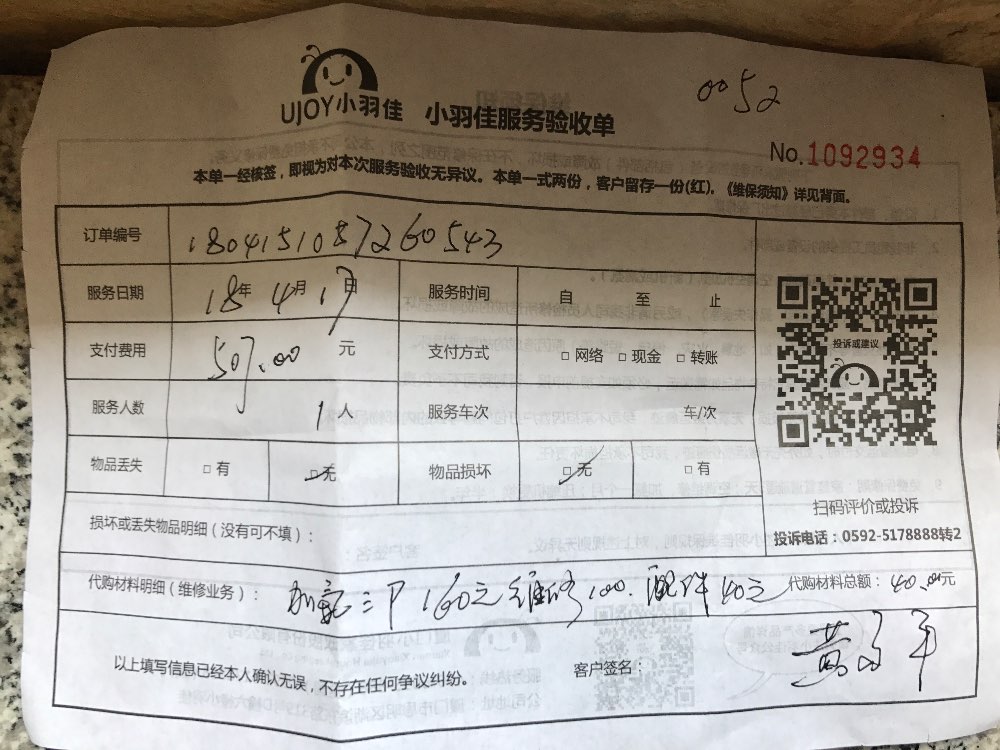 0052
UJOY小羽佳 小羽佳服务验收单
No.1092934
本单一经核签，即视为对本次服务验收无异议。本单一式两份，客户留存一份(红)。《维保须知》详见背面。
订单编号 1804151057260543
服务日期 18年 4月 1日 服务时间 自 至 止
支付费用 507.00 元 支付方式 □网络 □现金 □转账
投诉或建议
服务人数 1人 服务车次 车/次
物品丢失 □有 ☑无 物品损坏 ☑无 □有
扫码评价或投诉
损坏或丢失物品明细（没有可不填）：
投诉电话：0592-5178888转2
代购材料明细（维修业务）： 三P 160元 维修100. 配件40元 代购材料总额： 40.00元
以上填写信息已经本人确认无误，不存在任何争议纠纷。 客户签名：